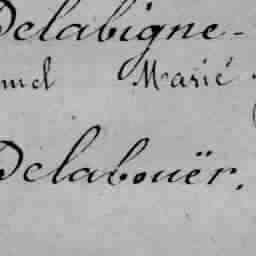 Delabigne -
Marié
Delabouër.